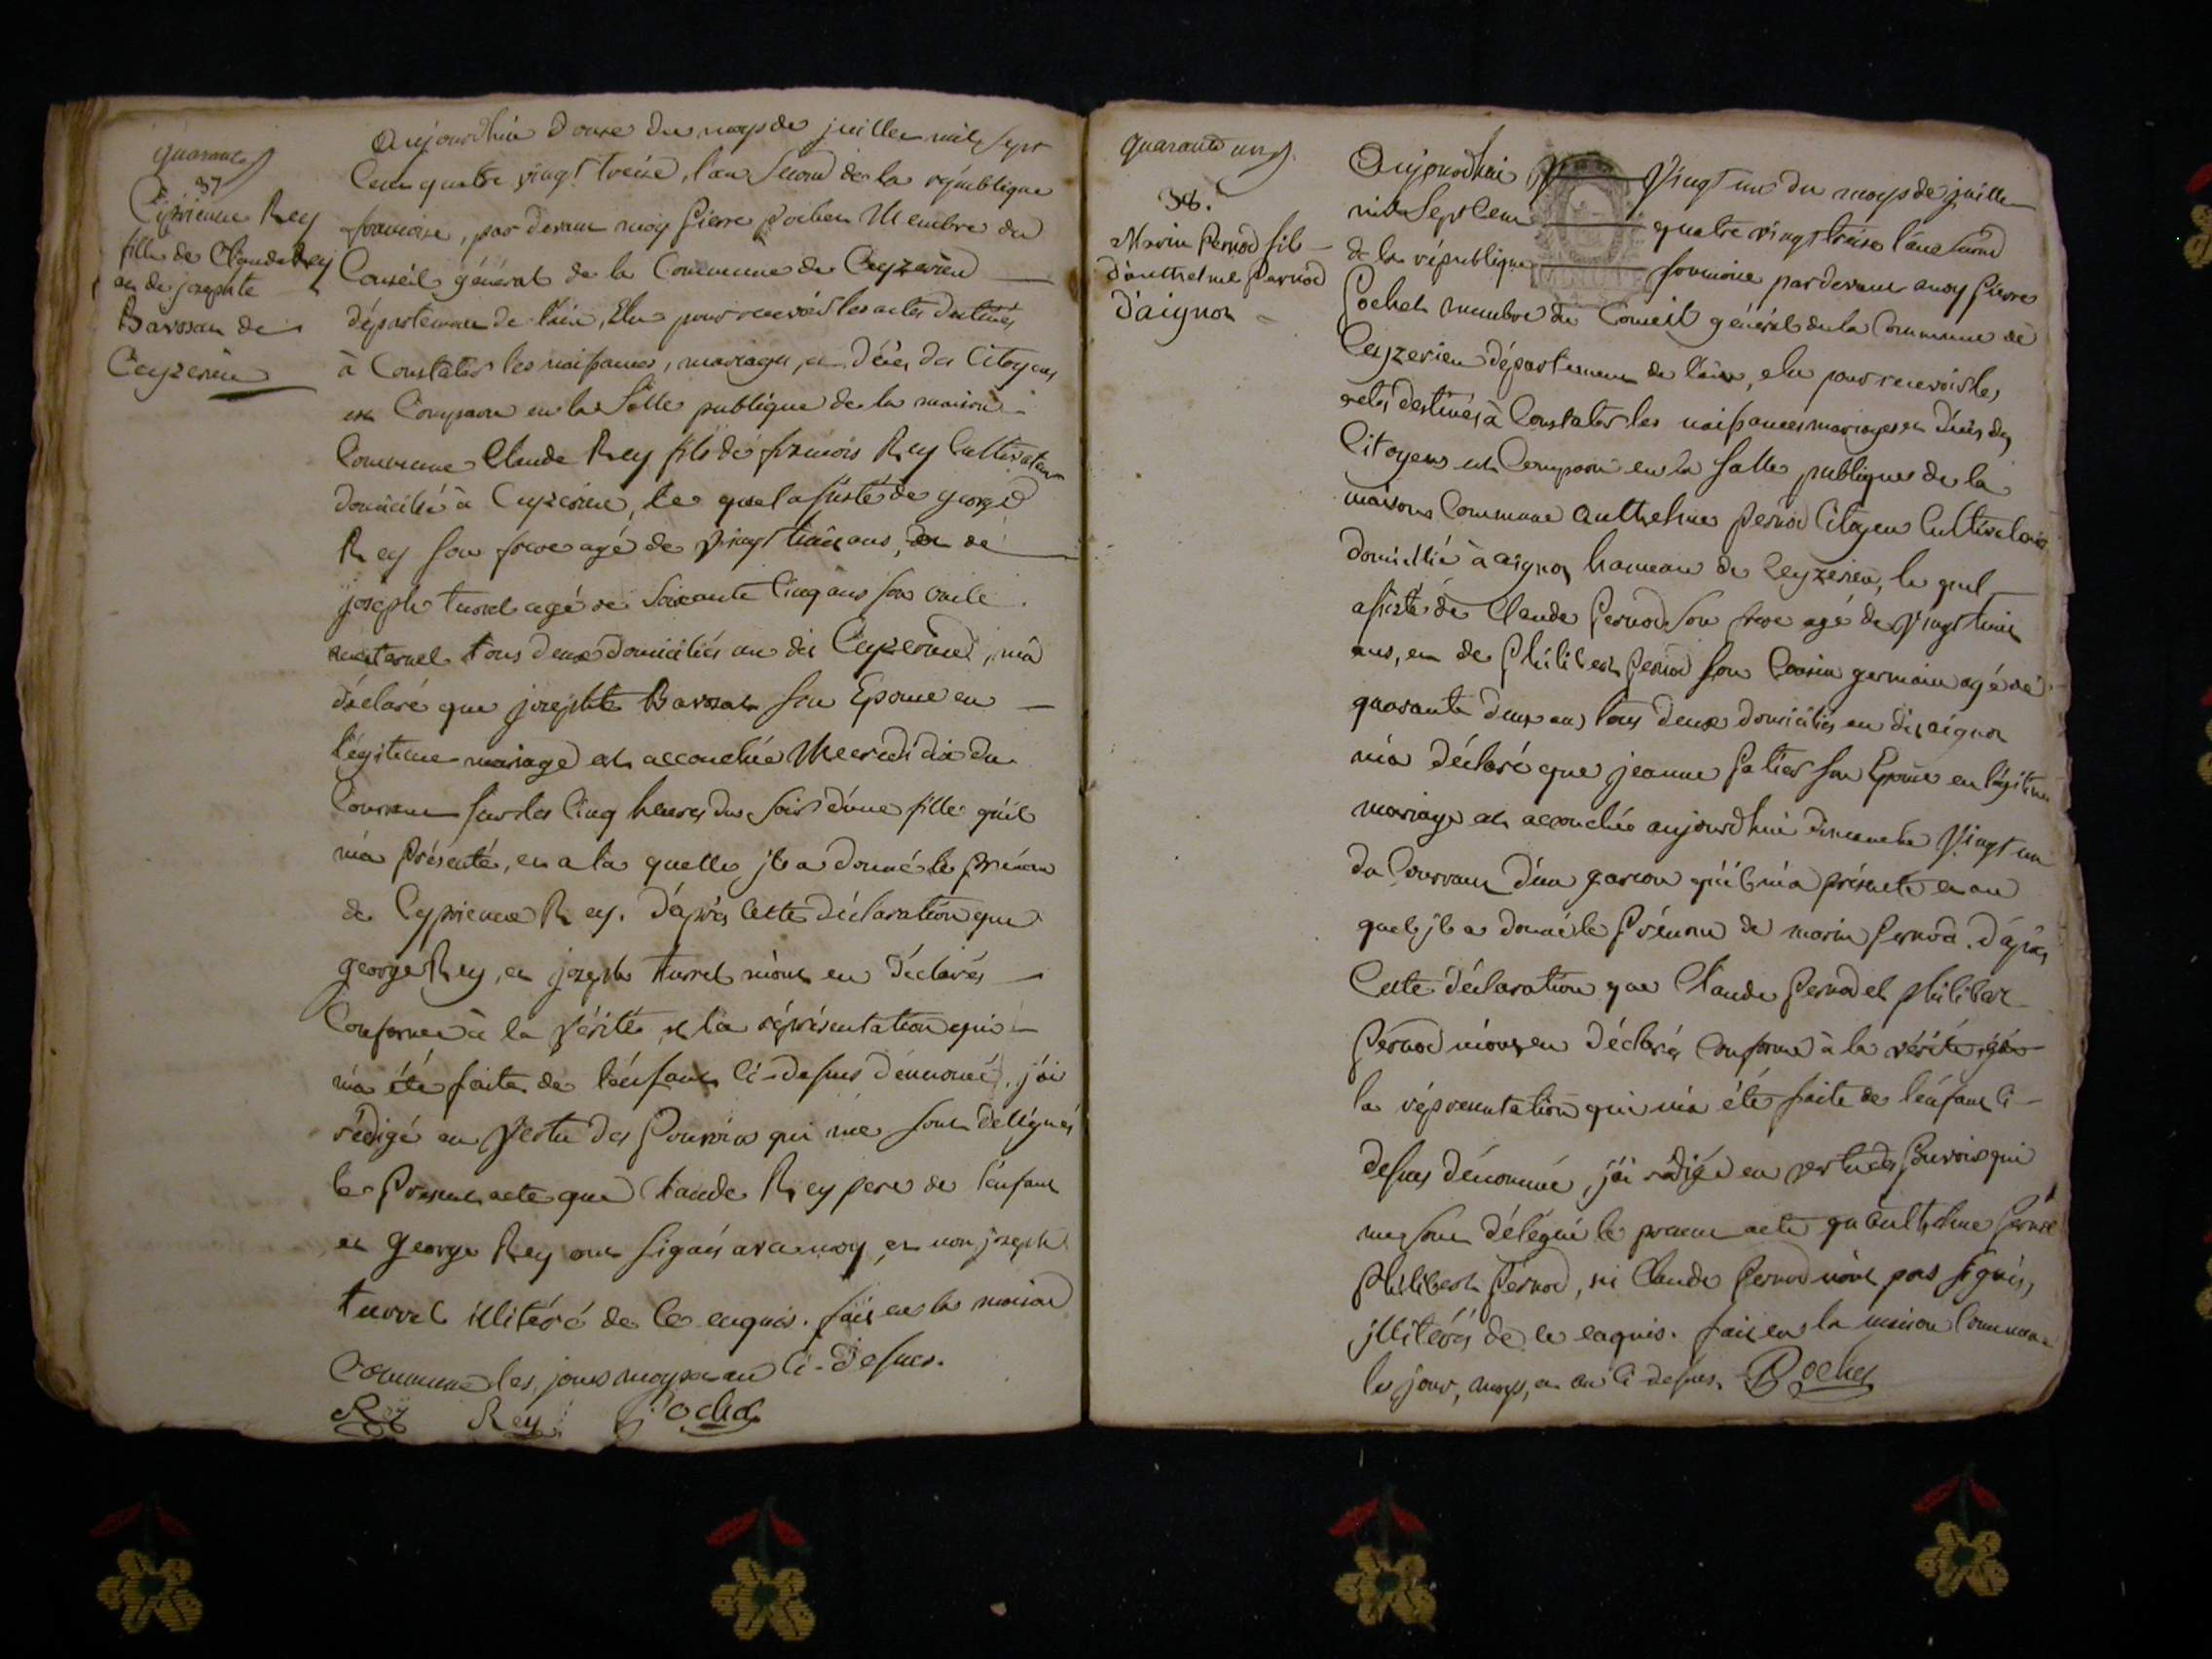 quarante
37
Ciprienne Rey
fille de Claude Rey
et de josephte
Barosat de
Ceyzerieu
Aujourdhui douze du moys de juillet mil sept
Cent quatre vingt treize, l'an second de la république
francoise, par devant moy Pierre Pochet Membre du
Conseil général de la Commune de Ceyzerieu
département de l'ain, Elu pour recevoir les actes destinés
à Constater les naissances, mariages, et décès des Citoyens
est Comparu en la Salle publique de la maison
Commune Claude Rey fils de françois Rey Cultivateur
domicilié à Ceyzerieu, le quel assisté de george
Rey son frere agé de vingt trois ans, et de
joseph turrel agé de soixante Cinq ans son oncle
maternel tous deux domiciliés au dit Ceyzerieu, m'a
déclaré que josephte Barosat son Epouse en
légitime mariage est accouchée Mecredi dix du
Courant sur les Cinq heures du soir d'une fille qu'il
m'a présenté, et a la quelle jl a donné le prénom
de Cyprienne Rey. d'après Cette déclaration que
george Rey, et joseph turrel m'ont en déclarés
Conforme à la vérité, et la réprésentation qui
m'a été faite de l'enfant Ci-dessus dénnomé, j'ai
rédigé en vertu des Pouvoirs qui me sont délégués
le Présent acte que Claude Rey pere de l'enfant
et george Rey ont signés avec moy, et non joseph
turrel illitéré de Ce enquis. fait en la maison
Commune les jours moys et an Ci-dessus.
Rey Rey Pochet
quarante un
38.
Marin Pernod fils
d'anthelme Pernod
d'aignoz
Aujourdhui vingt un du moys de juillet
mil Sept Cent quatre vingt treize l'an second
de la république francoise par devant moy Pierre
Pochet membre du Conseil général de la Commune de
Ceyzerieu département de l'ain, elu pour recevoir les
actes destinés à Constater les naissances mariages et décès des
Citoyens est Comparu en la salle publique de la
maison Commune anthelme Pernod Citoyen Cultivateur
domicilié à aignoz hameau de Ceyzerieu, le quel
assisté de Claude Pernod son frere agé de vingt trois
ans, et de Philibert Pernod son Cousin germain agé de
quarante deux ans tous deux domiciliés au dit aignoz
m'a déclaré que jeanne Patier son Epouse en légitime
mariage est accouchée aujourdhui dimanche vingt un
du Courant d'un garcon qu'il m'a présenté et au
quel jl a donné le Prénom de marin Pernod. d'après
Cette déclaration que Claude Pernod et philibert
Pernod m'ont en déclarés Conforme à la vérité,
la réprésentation qui m'a été faite de l'enfant Ci-
dessus dénommé, j'ai rédigé en vertu des Pouvoirs qui
me sont délégué le présent acte qu'anthelme Pernod
Philibert Pernod, ni Claude Pernod n'ont pas signés,
jllitérés de Ce enquis. fait en la maison Commune
les jour, moys, et an Ci-dessus. Pochet